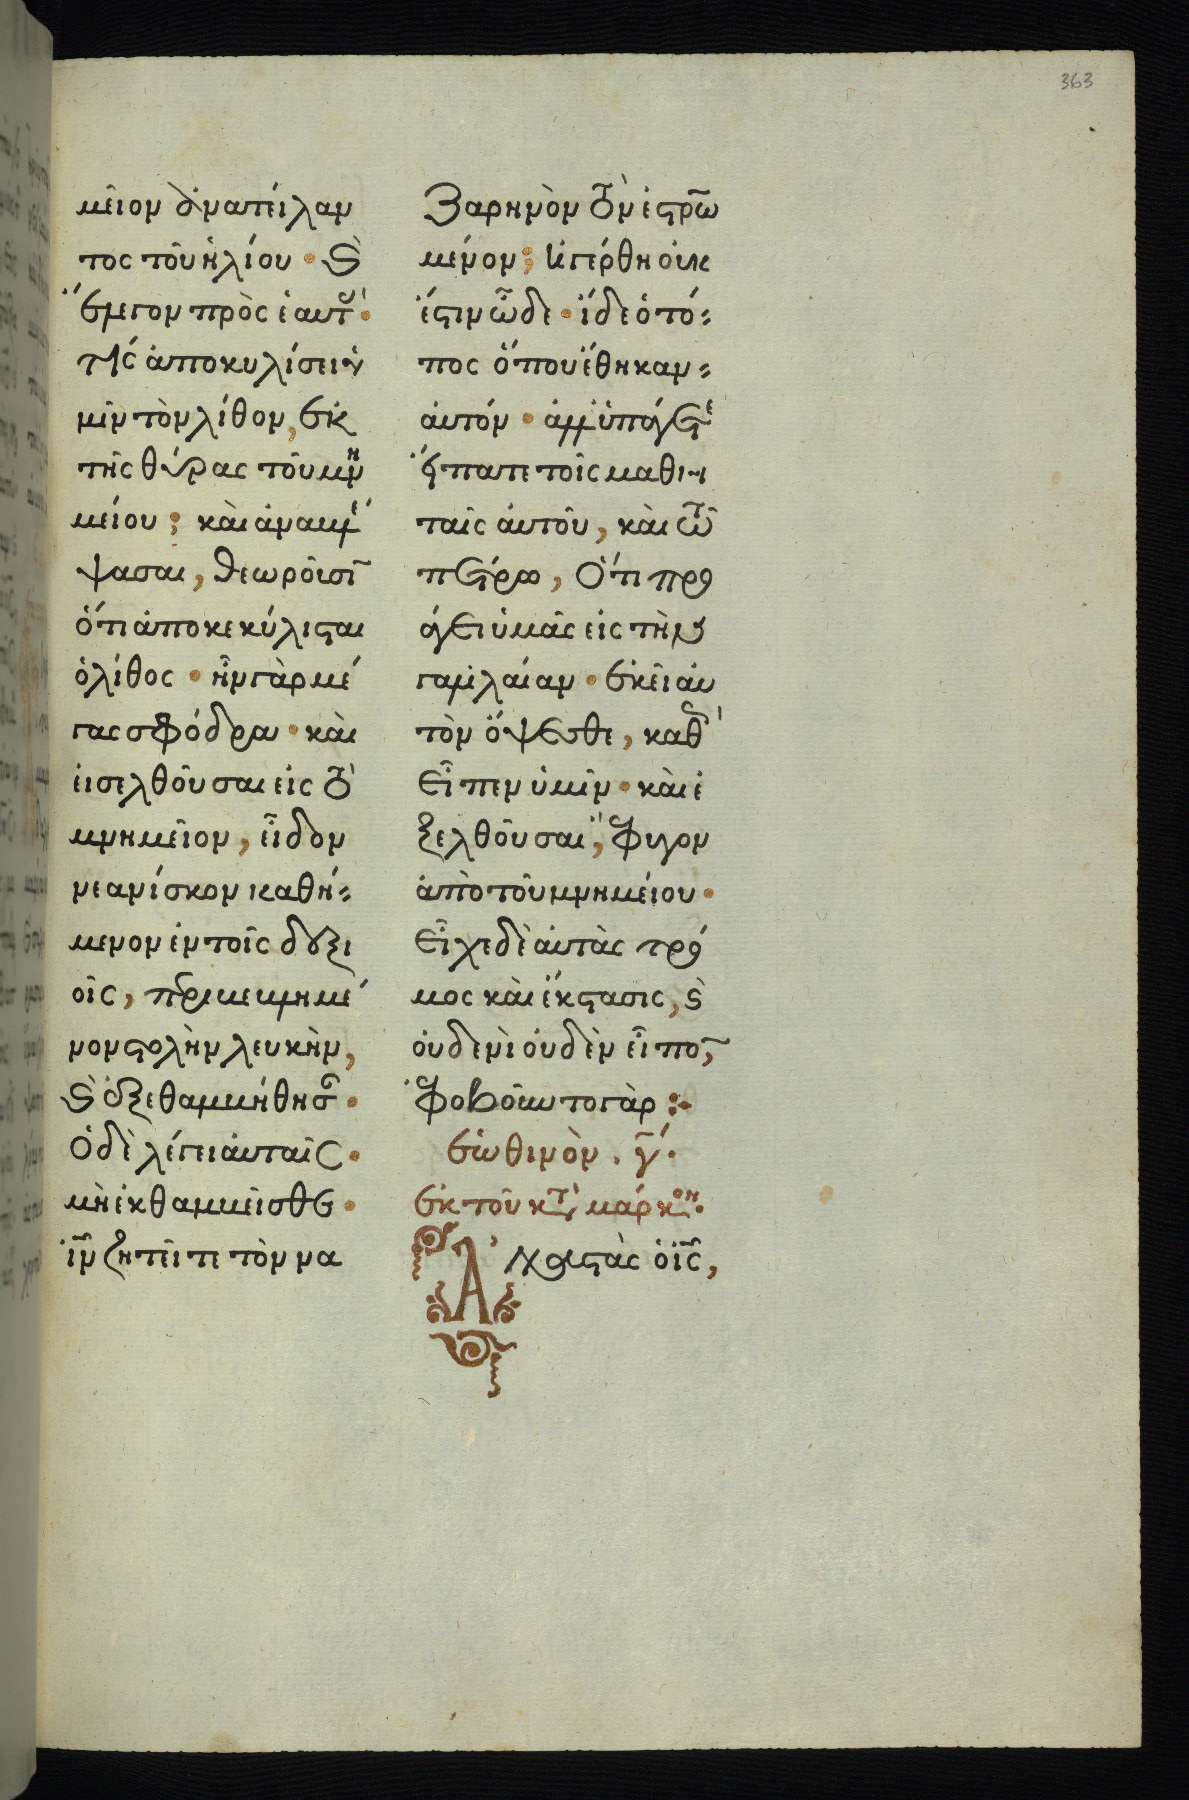 363
μεῖον ἀναπείλαν
τος τοῦ ἡλίου · καὶ
ἔλεγον πρὸς ἑαυτάς ·
τίς ἀποκυλίσει ἡ
μῖν τὸν λίθον, ἐκ
τῆς θύρας τοῦ μνη
μείου; καὶ ἀναβλέ
ψασαι, θεωροῦσιν
ὅτι ἀποκεκύλισται
ὁ λίθος · ἦν γὰρ μέ
γας σφόδρα · καὶ
εἰσελθοῦσαι εἰς τὸ
μνημεῖον, εἶδον
νεανίσκον καθή
μενον ἐν τοῖς δεξι
οῖς, περιβεβλημέ
νον στολὴν λευκὴν,
καὶ ἐξεθαμβήθησαν ·
Ὁ δὲ λέγει αὐταῖς ·
μὴ ἐκθαμβεῖσθε ·
ἰν ζητεῖτε τὸν να
ζαρηνὸν τὸν ἐσταυρω
μένον; ἠγέρθη οὐκ
ἔστιν ὧδε · ἴδε ὁ τό
πος ὅπου ἔθηκαν
αὐτόν · ἀλλ' ὑπάγετε
εἴπατε τοῖς μαθη
ταῖς αὐτοῦ, καὶ τῶ
πέτρω, Ὅτι προ
άγει ὑμᾶς εἰς τὴν
γαλιλαίαν · ἐκεῖ αὐ
τὸν ὄψεσθε, καθὼς
εἶπεν ὑμῖν · καὶ ἐ
ξελθοῦσαι, ἔφυγον
ἀπὸ τοῦ μνημείου ·
εἶχε δὲ αὐτὰς τρό
μος καὶ ἔκστασις, καὶ
οὐδενὶ οὐδὲν εἶπον,
ἐφοβοῦντο γὰρ :·
ἑωθινὸν . γ ·
ἐκ τοῦ κατὰ μάρκον ·
Ἀναστὰς ὁ ις,